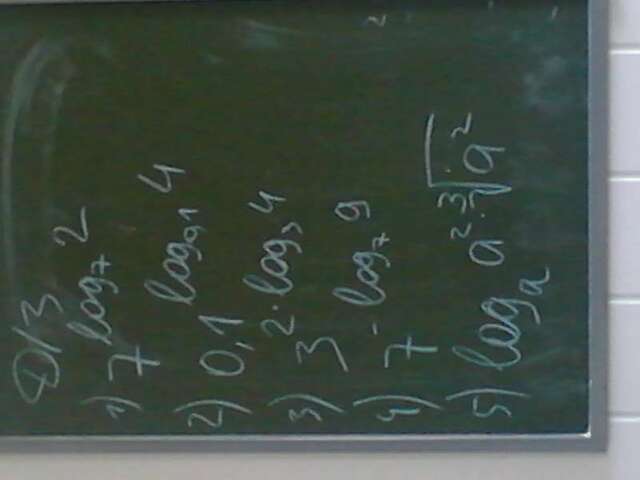 Д/З
1) 7^{log_7 2}
2) 0,1^{log_{0,1} 4}
3) 3^{2·log_3 4}
4) 7^{-log_7 9}
5) log_a a^2·\sqrt[3]{a^2}